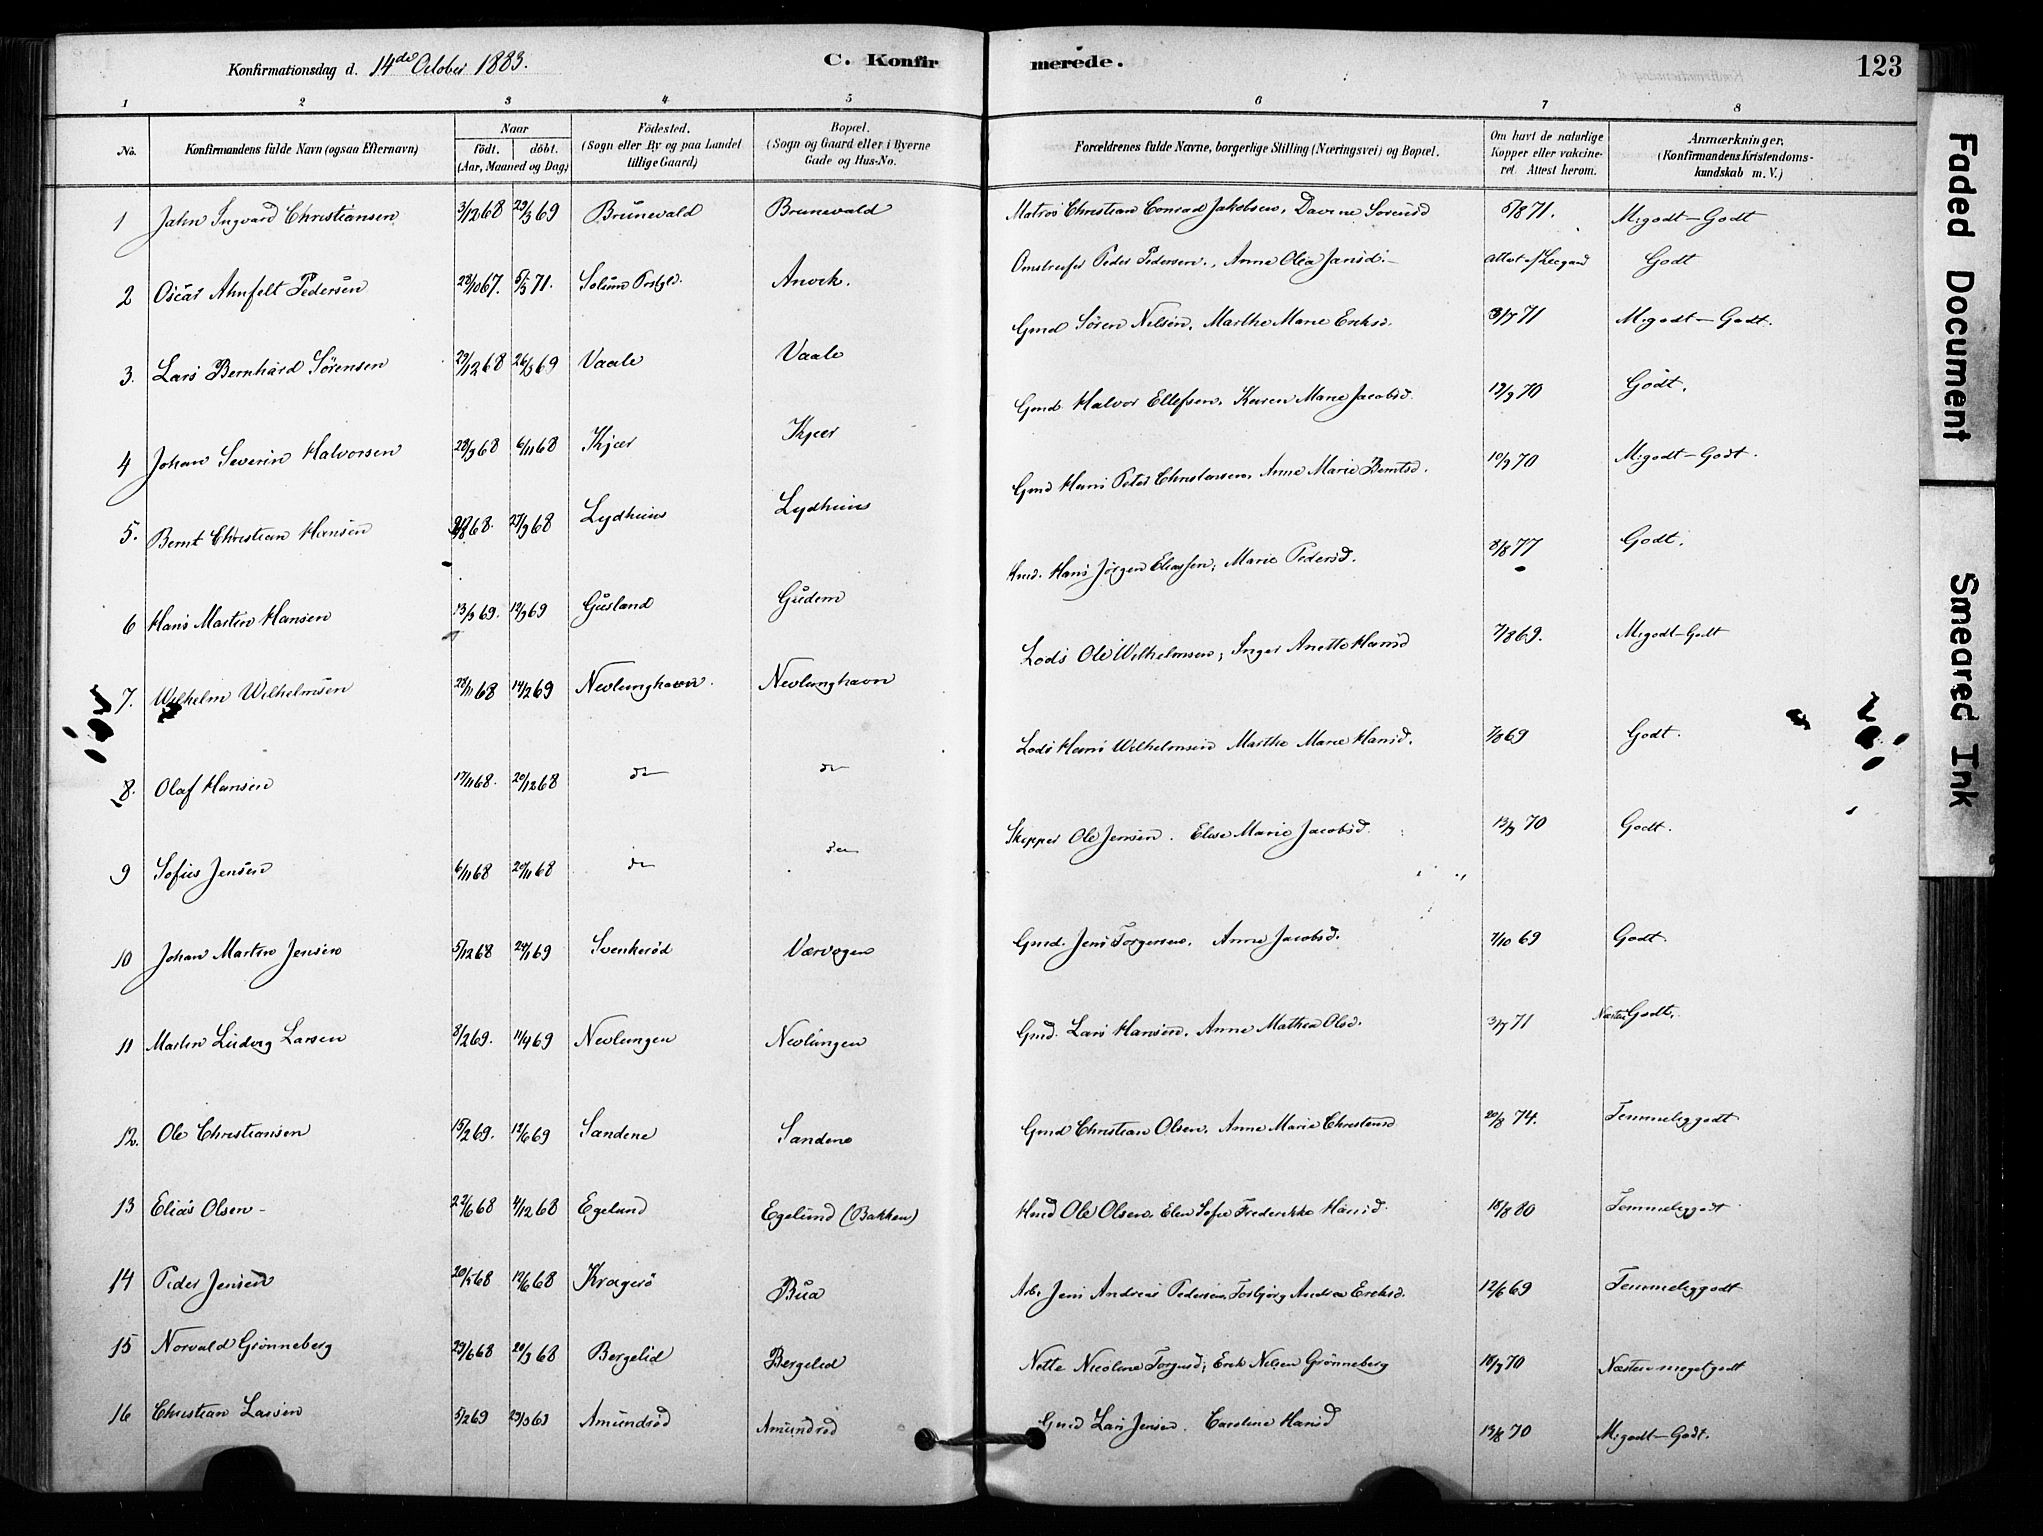 Konfirmationsdag d. 14de October 1883.
C. Konfirmerede.
123
1 2 3 4 5 6 7 8
No.
Konfirmandens fulde Navn (ogsaa Efternavn)
Naar
födt. döbt.
(Aar, Maaned og Dag)
Födested.
(Sogn eller By og paa Landet
tillige Gaard)
Bopæl.
(Sogn og Gaard eller i Byerne
Gade og Hus-No.
Forældrenes fulde Navne, borgerlige Stilling (Næringsvei) og Bopæl.
Om havt de naturlige
Kopper eller vakcine-
ret. Attest herom.
Anmærkninger,
(Konfirmandens Kristendoms-
kundskab m. V.)
1 Jahn Ingvard Christiansen 3/12 68 29/3 69 Brunevald Brunevald Matros Christian Conrad Jakobsen, Davine Sørensd 5/8 71. M.godt-Godt
2 Oscar Ahnfelt Pedersen 28/10 67. 5/3 71. Solum Prstgld. Anvik. Peder Pedersen, Anne Olea Jansd. Attest af Godt
3. Lars Bernhard Sørensen 29/12 68 26/3 69 Vaale Vaale Gmd Søren Nilsen, Marthe Marie Eriksd. 3/7 71 M.godt-Godt.
4 Johan Severin Halvorsen 28/9 68 6/11 68 Kjær Kjær Gmd. Halvor Ellefsen, Karen Marie Jacobsd. 12/9 70 Godt.
5. Bernt Christian Hansen 68. 27/9 68 Lydhuus Lydhuus Gmd Hans Peter Christensen, Anne Marie Berntsd. 10/9 70 M.godt-Godt.
6 Hans Martin Hansen 13/3 69. 12/9 69 Gusland Gudem Hmd. Hans Jørgen Eliassen, Marie Pedersd. 8/8 77 Godt.
7. Wilhelm Wilhelmsen 28/11 68 14/2 69 Nevlunghavn. Nevlunghavn Lods Ole Wilhelmsen, Inger Anette Hansd 7/8 69. M.godt-Godt
8. Olaf Hansen 17/11 68. 20/12 68 do do Lods Hans Wilhelmsen Marthe Marie Hansd. 7/8 69 Godt.
9 Sofus Jensen 6/11 68 20/11 68 do do Skipper Ole Jensen. Elise Marie Jacobsd. 13/9 70 Godt.
10 Johan Martin Jensen 5/12 68 24/1 69 Svenkerød Værvogen Gmd. Jens Torgersen. Anne Jacobsd. 7/10 69 Godt.
11 Martin Ludvig Larsen 8/2 69. 11/4 69 Nevlungen Nevlungen Gmd. Lars Hansen, Anne Mathea Olsd. 3/7 71 Næsten Godt.
12. Ole Christiansen 15/2 69. 12/6 69 Sandene Sandene Gmd Christian Olsen, Anne Marie Christensd 20/8 74. Temmelig godt
13 Elias Olsen- 22/6 68 4/12 68 Egelund Egelund (Bakken) Hmd Ole Olsen, Elen Sofie Frederikke Hansd. 18/8 80 Temmelig godt
14 Peder Jensen 20/1 68 12/6 68 Kragerö Bua Arb. Jens Andreas Pedersen, Torbjørg Andrea Eriksd. 12/6 69 Temmelig godt
15 Norvald Grønneberg 29/6 68 20/9 68 Bergelid Bergelid Nette Nicoline Torgersd; Erik Nilsen Grønneberg 18/9 70 Næsten meget godt
16 Christian Larsen 5/2 69 29/3 69 Amundrød Amundrød Gmd Lars Jensen. Caroline Hansd 13/8 70 M.godt-Godt.
Faded Document
Smeared Ink